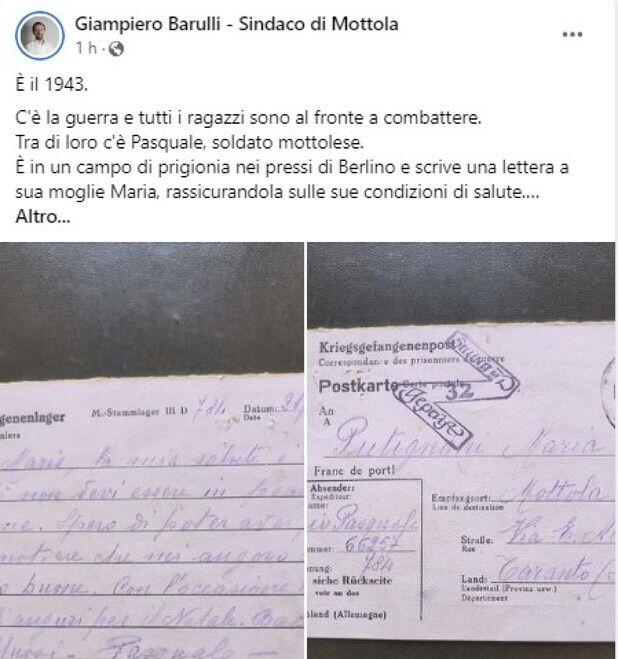 Giampiero Barulli - Sindaco di Mottola
1 h
È il 1943.
C'è la guerra e tutti i ragazzi sono al fronte a combattere.
Tra di loro c'è Pasquale, soldato mottolese.
È in un campo di prigionia nei pressi di Berlino e scrive una lettera a
sua moglie Maria, rassicurandola sulle sue condizioni di salute....
Altro...
genenlager
M.-Stammlager III D 784
Datum: 21
Date
Maria la mia salute è
non devi essere in pen
ne. Spero di poter aver
notizie che mi auguro
buone. Con l'occasione
auguri per il Natale. Ba
Pasquale
Kriegsgefangenenpost
Correspondance des prisonniers de guerre
Postkarte Carte postale
Geprüft
32
An
A
Putignani Maria
Franc de port!
Absender:
Expéditeur:
ame:
Pasquale
mmer: 66257
nung: 784
siehe Rückseite
voir au dos
land (Allemagne)
Empfangsort: Mottola
Lieu de destination
Straße: Via E.
Rue
Land: Taranto
Landesteil (Provinz usw.)
Département